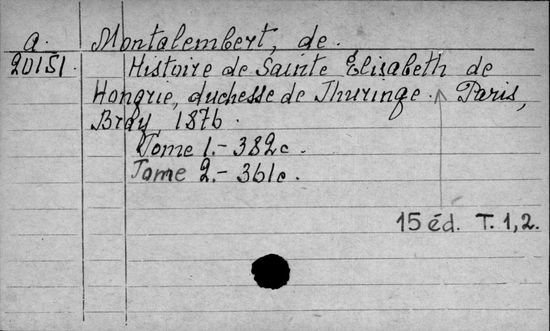 a. Montalembert, de.
20151. Histoire de Sainte Elisabeth de
Hongrie, duchesse de Thuringe. Paris,
Bray 1876.
Tome 1.- 382c.
Tome 2.- 361c.
15 éd. T. 1, 2.